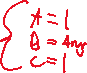 A = 1
B = Any
C = 1